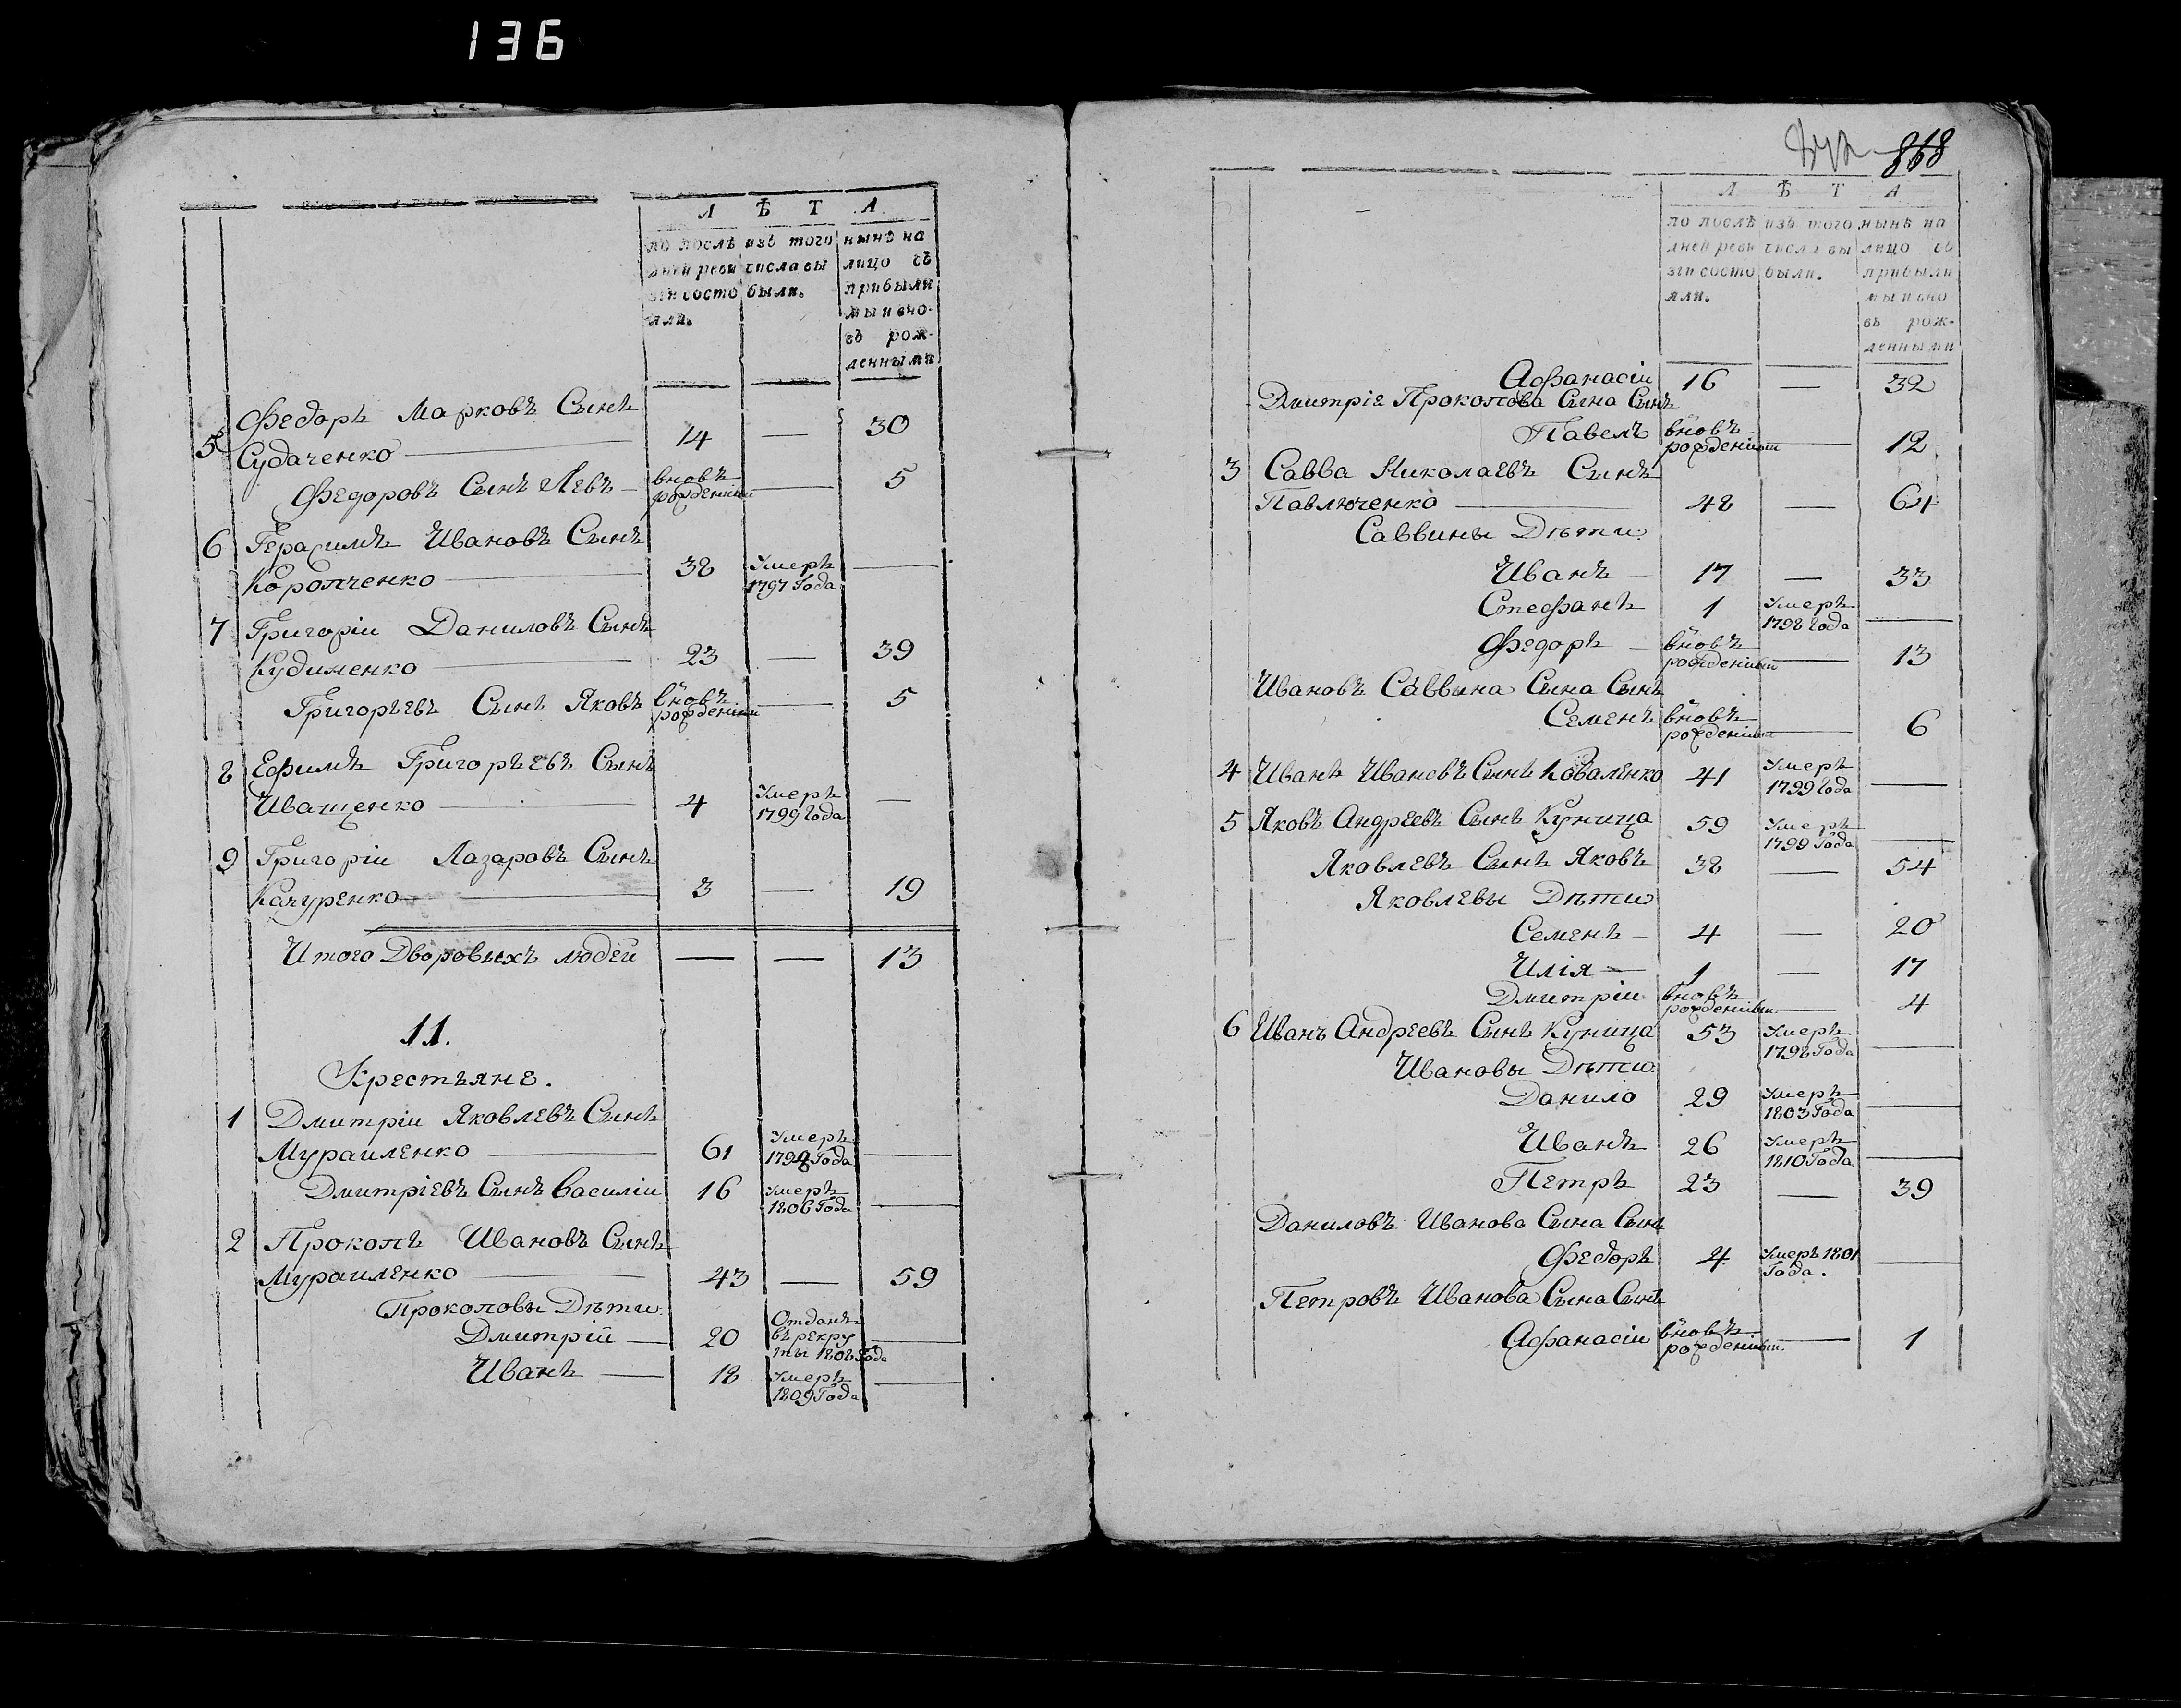 136
Л Ѣ Т А
по послѣ изъ того нынѣ на
дней реви числа вы лицо съ
зіи состо были. прибылы
яли. мы и вно-
въ рож-
денными
5 Федоръ Марковъ Сынъ
Судаченко — 14 — 30
Федоровъ Сынъ Левъ — вновь рожденный — 5
6 Герасимъ Ивановъ Сынъ
Коропченко — 38 Умеръ 1797 Года —
7 Григоріи Даниловъ Сынъ
Кудименко — 23 — 39
Григорьевъ Сынъ Яковъ вновь рожденный — 5
8 Ефимъ Григорьевъ Сынъ
Иващенко — 4 Умеръ 1799 Года —
9 Григоріи Лазаровъ Сынъ
Качуренко — 3 — 19
Итого Дворовыхъ людей — — 13
11.
Крестьяне.
1 Дмитріи Яковлевъ Сынъ
Мураиленко — 61 Умеръ Года —
Дмитріевъ Сынъ Василіи 16 Умеръ 1806 Года —
2 Прокопъ Ивановъ Сынъ
Мураиленко — 43 — 59
Прокоповы Дѣти
Дмитрій — 20 Отданъ въ рекру ты 1808 Года —
Иванъ — 18 Умеръ 1809 Года —
868
Л Ѣ Т А
по послѣ изъ того нынѣ на
дней реви числа вы лицо съ
зіи состо были. прибыли
яли. мы и вно
въ рож-
денными
Афанасіи 16 — 32
Дмитріе Прокопова Сына Сынъ
Павелъ вновь рожденный — 12
3 Савва Николаевъ Сынъ
Павлюченко — 48 — 64
Саввины Дѣти
Иванъ — 17 — 33
Стефанъ 1 Умеръ 1798 Года —
Федоръ — вновь рожденный — 13
Ивановъ Саввина Сына Сынъ
Семенъ вновь рожденный — 6
4 Иванъ Ивановъ Сынъ Коваленко 41 Умеръ 1799 Года —
5 Яковъ Андреевъ Сынъ Куница 59 Умеръ 1799 Года —
Яковлевъ Сынъ Яковъ 38 — 54
Яковлевы Дѣти
Семенъ — 4 — 20
Илія — 1 — 17
Дмитріи вновь рожденный — 4
6 Иванъ Андреевъ Сынъ Куница 53 Умеръ 1798 Года —
Ивановы Дѣти
Данило 29 Умеръ 1803 Года —
Иванъ 26 Умеръ 1810 Года —
Петръ 23 — 39
Даниловъ Иванова Сына Сынъ
Федоръ 4 Умеръ 1801 Года. —
Петровъ Иванова Сына Сынъ
Афанасіи вновь рожденный. — 1